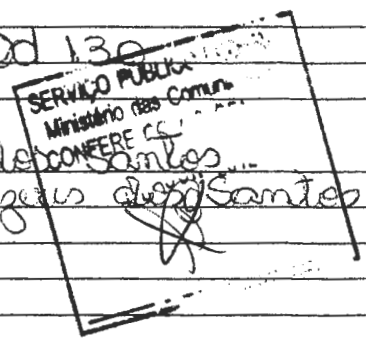 Qd 130
SERVIÇO PÚBLIC
Ministério das Comun
CONFERE
dos Santos
dos Santos